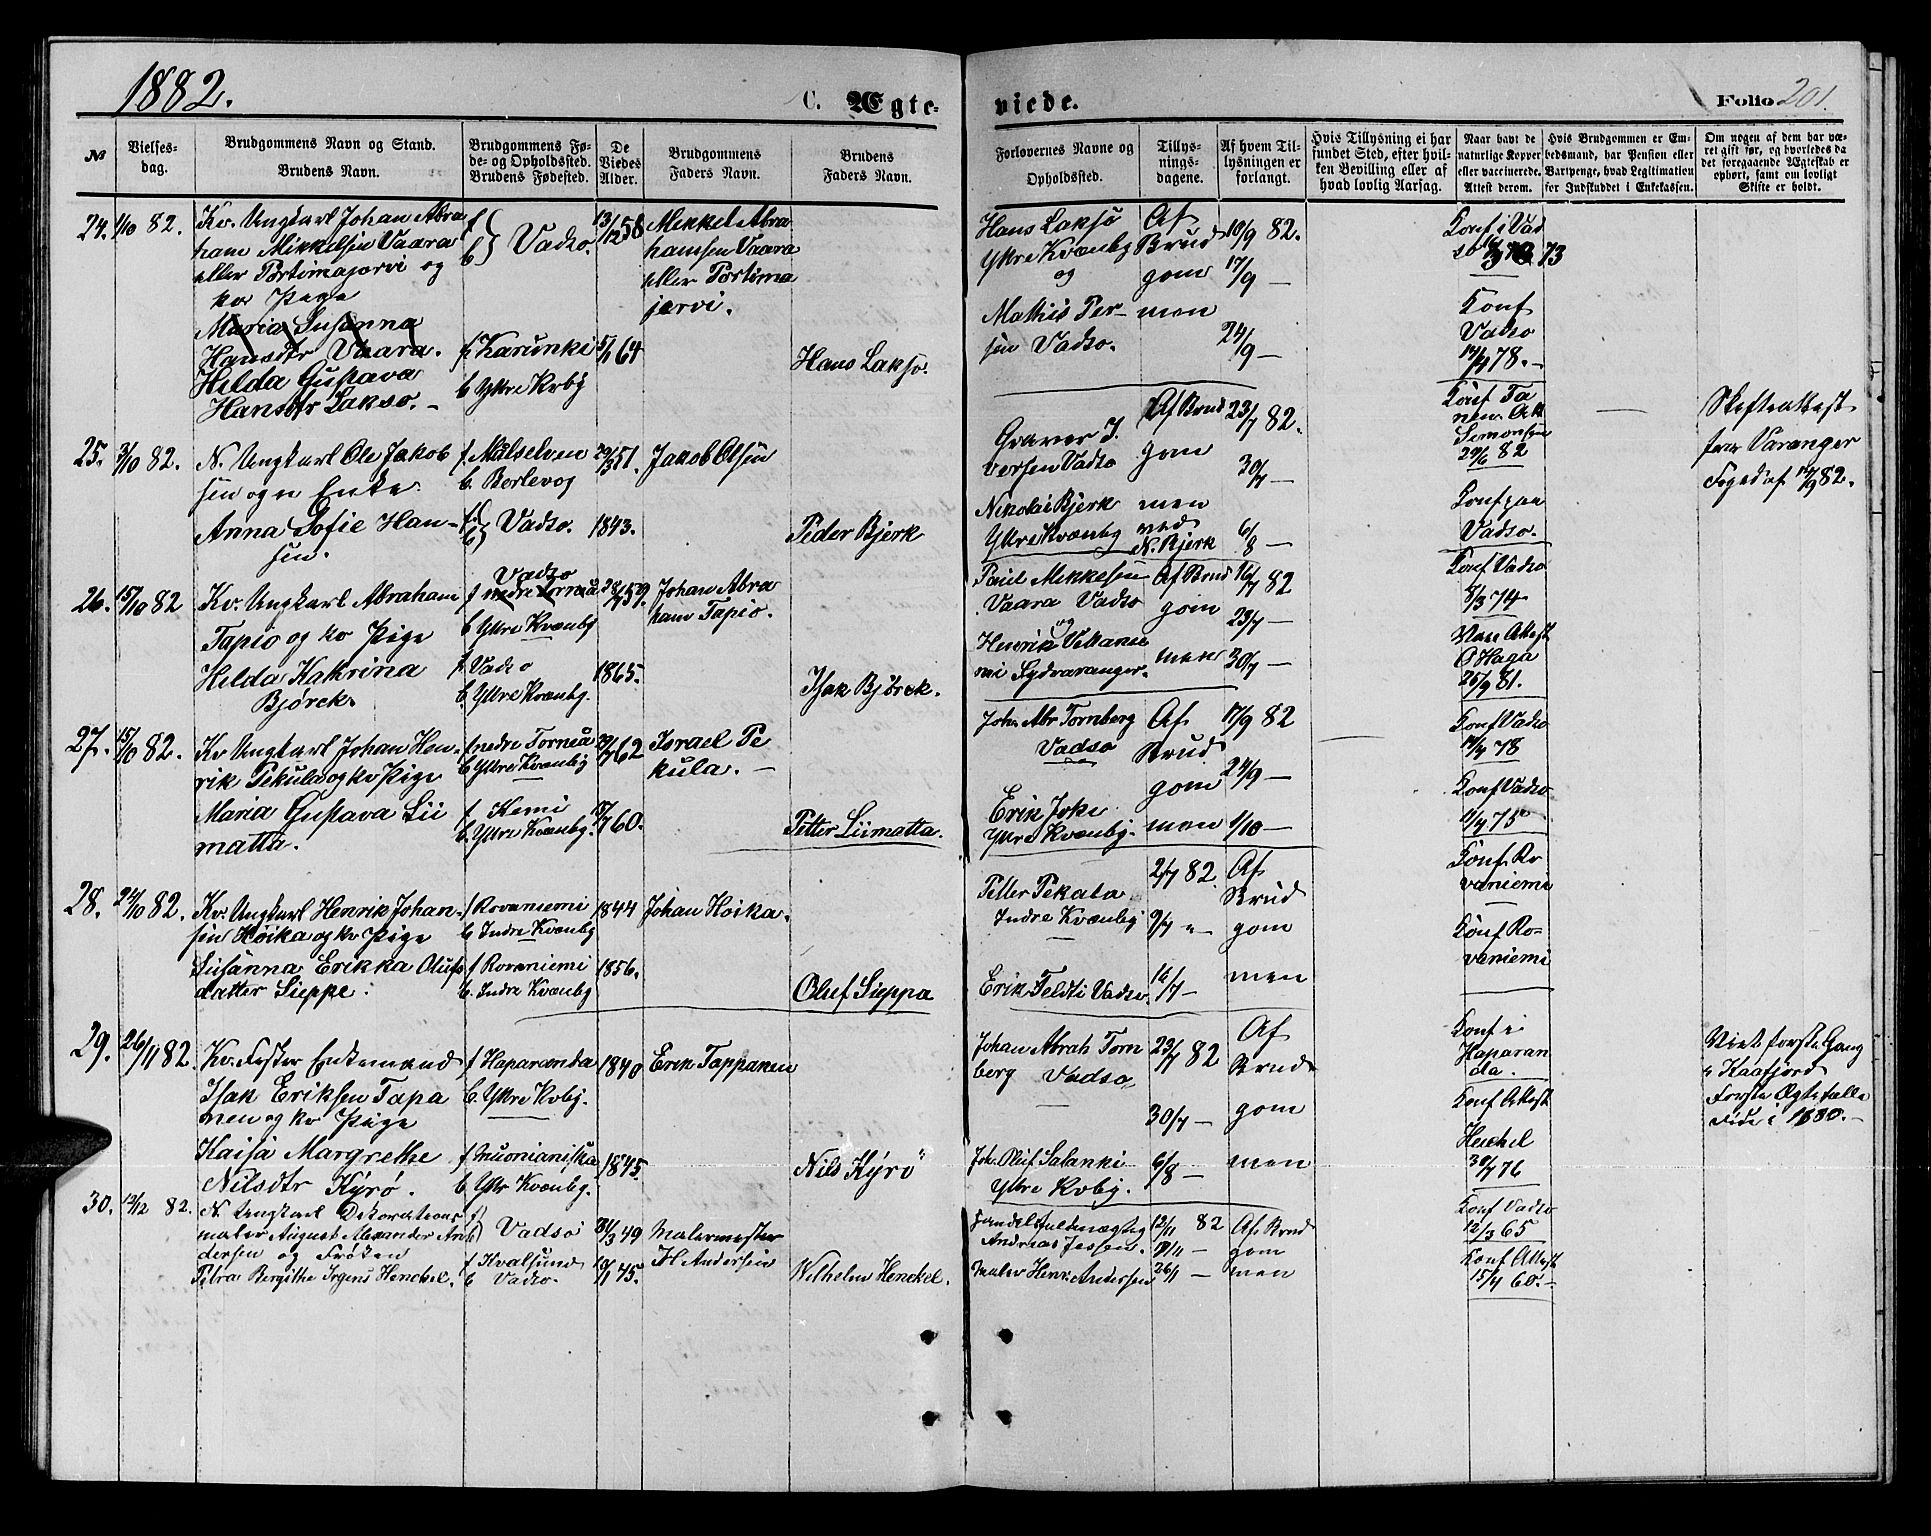 1882.
C. Ægte-
viede.
Folio 201.
№
Vielses-
dag.
Brudgommens Navn og Stand.
Brudens Navn.
Brudgommens Fø-
de- og Opholdssted.
Brudens Fødested.
De
Viedes
Alder.
Brudgommens
Faders Navn.
Brudens
Faders Navn.
Forlovernes Navne og
Opholdssted.
Tillys-
nings-
dagene.
Af hvem Til-
lysningen er
forlangt.
Hvis Tillysning ei har
fundet Sted, efter hvil-
ken Bevilling eller af
hvad lovlig Aarsag.
Naar havt de
naturlige Kopper
eller vaccinerede.
Attest derom.
Hvis Brudgommen er Em-
bedsmand, har Pension eller
Vartpenge, hvad Legitimation
for Indskuddet i Enkekassen.
Om nogen af dem har væ-
ret gift før, og hvorledes da
det foregaaende Ægteskab er
ophørt, samt om lovligt
Skifte er holdt.
24. 1/10 82.
Kv. Ungkarl Johan Abra
ham Mikkelsen Vaara
eller Portimajarvi og
kv Pige
Maria Susanna
Hansdtr Vaara.
Hilda Gustava
Hansdtr Lakso.-
f
b } Vadsø.
13/12 58
Mikkel Abra
hamsen Vaara
eller Portima
jarvi.
f Karunki
b Ytre Kvby
5/1 64
Hans Lakso.
Hans Lakso
Ytre Kvænby
og
Mathis Per-
sen Vadsø.
Af
Brud
gom
men
10/9 82.
17/9 —
24/9 —
Konf i Vad
sø 73
Konf
Vadsø
14/4 78.-
25. 3/10 82.
N. Ungkarl Ole Jakob
sen og n Enke
Anna Sofie Han-
sen.
f. Målselven
b. Berlevog
f
b } Vadsø.
29/3 51.
1843.
Jakob Olsen
Peder Bjerk
Gunvor I.
versen Vadsø
Nikolai Bjerk
Ytre Kvænby
Af Brud
gom
men
ved
N. Bjerk
23/7 82.
30/7 —
6/8 —
Konf Ta
nen. Att
Simonsen
29/6 82
Konf paa
Vadsø.
—
Skifteattest
fra Varanger
Fogd af 17/9 82.
26. 15/10 82
Kv. Ungkarl Abraham
Tapio og kv Pige
Hilda Kathrina
Bjørck.
Vadsø
f nedre Torneå
b Ytre Kvænby
f Vadsø
b Ytre Kvænby.
28/7 59.
1865.
Johan Abra
ham Tapio.
Isak Bjørck.
Paul Mikkelsen
Vaara Vadsø
og
Henrik Vittanie
mi Sydvaranger.
Af Brud
gom
men
16/7 82
23/7 —
30/7 —
Konf Vadsø
8/3 74
Vac Attest
O Haga
25/9 81.
27. 15/10 82.
Kv Ungkarl Johan Hen-
rik Pekula og kv Pige
Maria Gustava Lii
matta.
f nedre Torneå
b Ytre Kvænby
f. Kemi
b. Ytre Kvænby.
62
60.
Israel Pe
kula. —
Petter Liimatta.
Joh. Abr Tornberg
Vadsø
Erik Joki
Ytre Kvænby.
Af
Brud
gom
men
17/9 82
24/9 —
1/10 —
Konf Vadsø
14/4 78
Konf Vadsø
11/4 75
28. 24/10 82.
Kv. Ungkarl Henrik Johan-
sen Hoika og kv Pige
Susanna Erikka Olufs
datter Sieppe.
f Rovaniemi
b. Indre Kvænby
f Rovaniemi
b. Indre Kvænby
1844
1856.
Johan Hoika.
Oluf Sieppa
Petter Pekala
Indre Kvænby
Erik Feldti Vadsø.
2/7 82.
9/7 "—
16/7 —
Af
Brud
gom
men
Konf. Ro
vaniemi
Konf Ro-
vaniemi
29. 26/11 82
Kv. Fisker Enkemand
Isak Eriksen Tapa
nen og kv Pige
Kaisa Margrethe
Nilsdtr Kyrø.
f Haparanda
b Ytre Kvby.
f Muonianiska
b Ytr Kvænby.
1840
1845.
Erik Tappanen
Nils Kyrø
Johan Abrah Torn
berg Vadsø
Joh. Oluf Salanki
Ytre Kvby.
23/7 82
30/7 —
6/8 —
Af
Brud
gom
men
Konf i
Haparan
da.
Konf Attest
Henkel
30/7 76
Viet første Gang
i Kaafjord
Første Ægtefælle
døde i 1880.—
30. 12/12 82.
N. Ungkarl Dekorations
maler August Alexander An
dersen og Frøken
Petra Bergithe Irgens Henckel.
f
b } Vadsø
f Kvalsund
b Vadsø.
31/3 49
10/1 45.
Malermester
H Andersen
Wilhelm Henckel.
Handelsfuldmægtig
Andreas Jessen.
Maler Henr. Andersen
12/11 82
19/11 —
26/11 —
Af Brud
gom
men
Konf Vadsø
12/3 65
Konf Attest
15/4 60.-